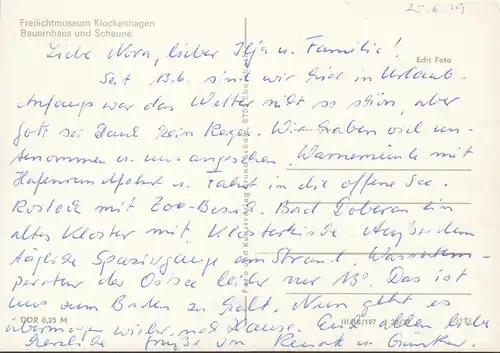 25.6.79
Freilichtmuseum Klockenhagen
Bauernhaus und Scheune
Echt Foto
Liebe Nora, lieber Ilja u. Familie!
Seit 13.6. sind wir hier in Urlaub.
Anfangs war das Wetter nicht so schön, aber
Gott sei Dank kein Regen. Wir haben viel un-
ternommen u. uns angesehen. Warnemünde mit
Hafenrundfahrt u. Fahrt in die offene See.
Rostock mit Zoo-Besuch. Bad Doberan ein
altes Kloster mit Klosterkirche. Außerdem
tägliche Spaziergänge am Strand. Wassertem-
peratur der Ostsee leider nur 13°. Das ist
uns zum Baden zu kalt. Nun geht es
übermorgen wieder nach Hause. Euch allen liebe
herzliche Grüße von Renate u. Günther.
DDR 0,25 M
III/18/197